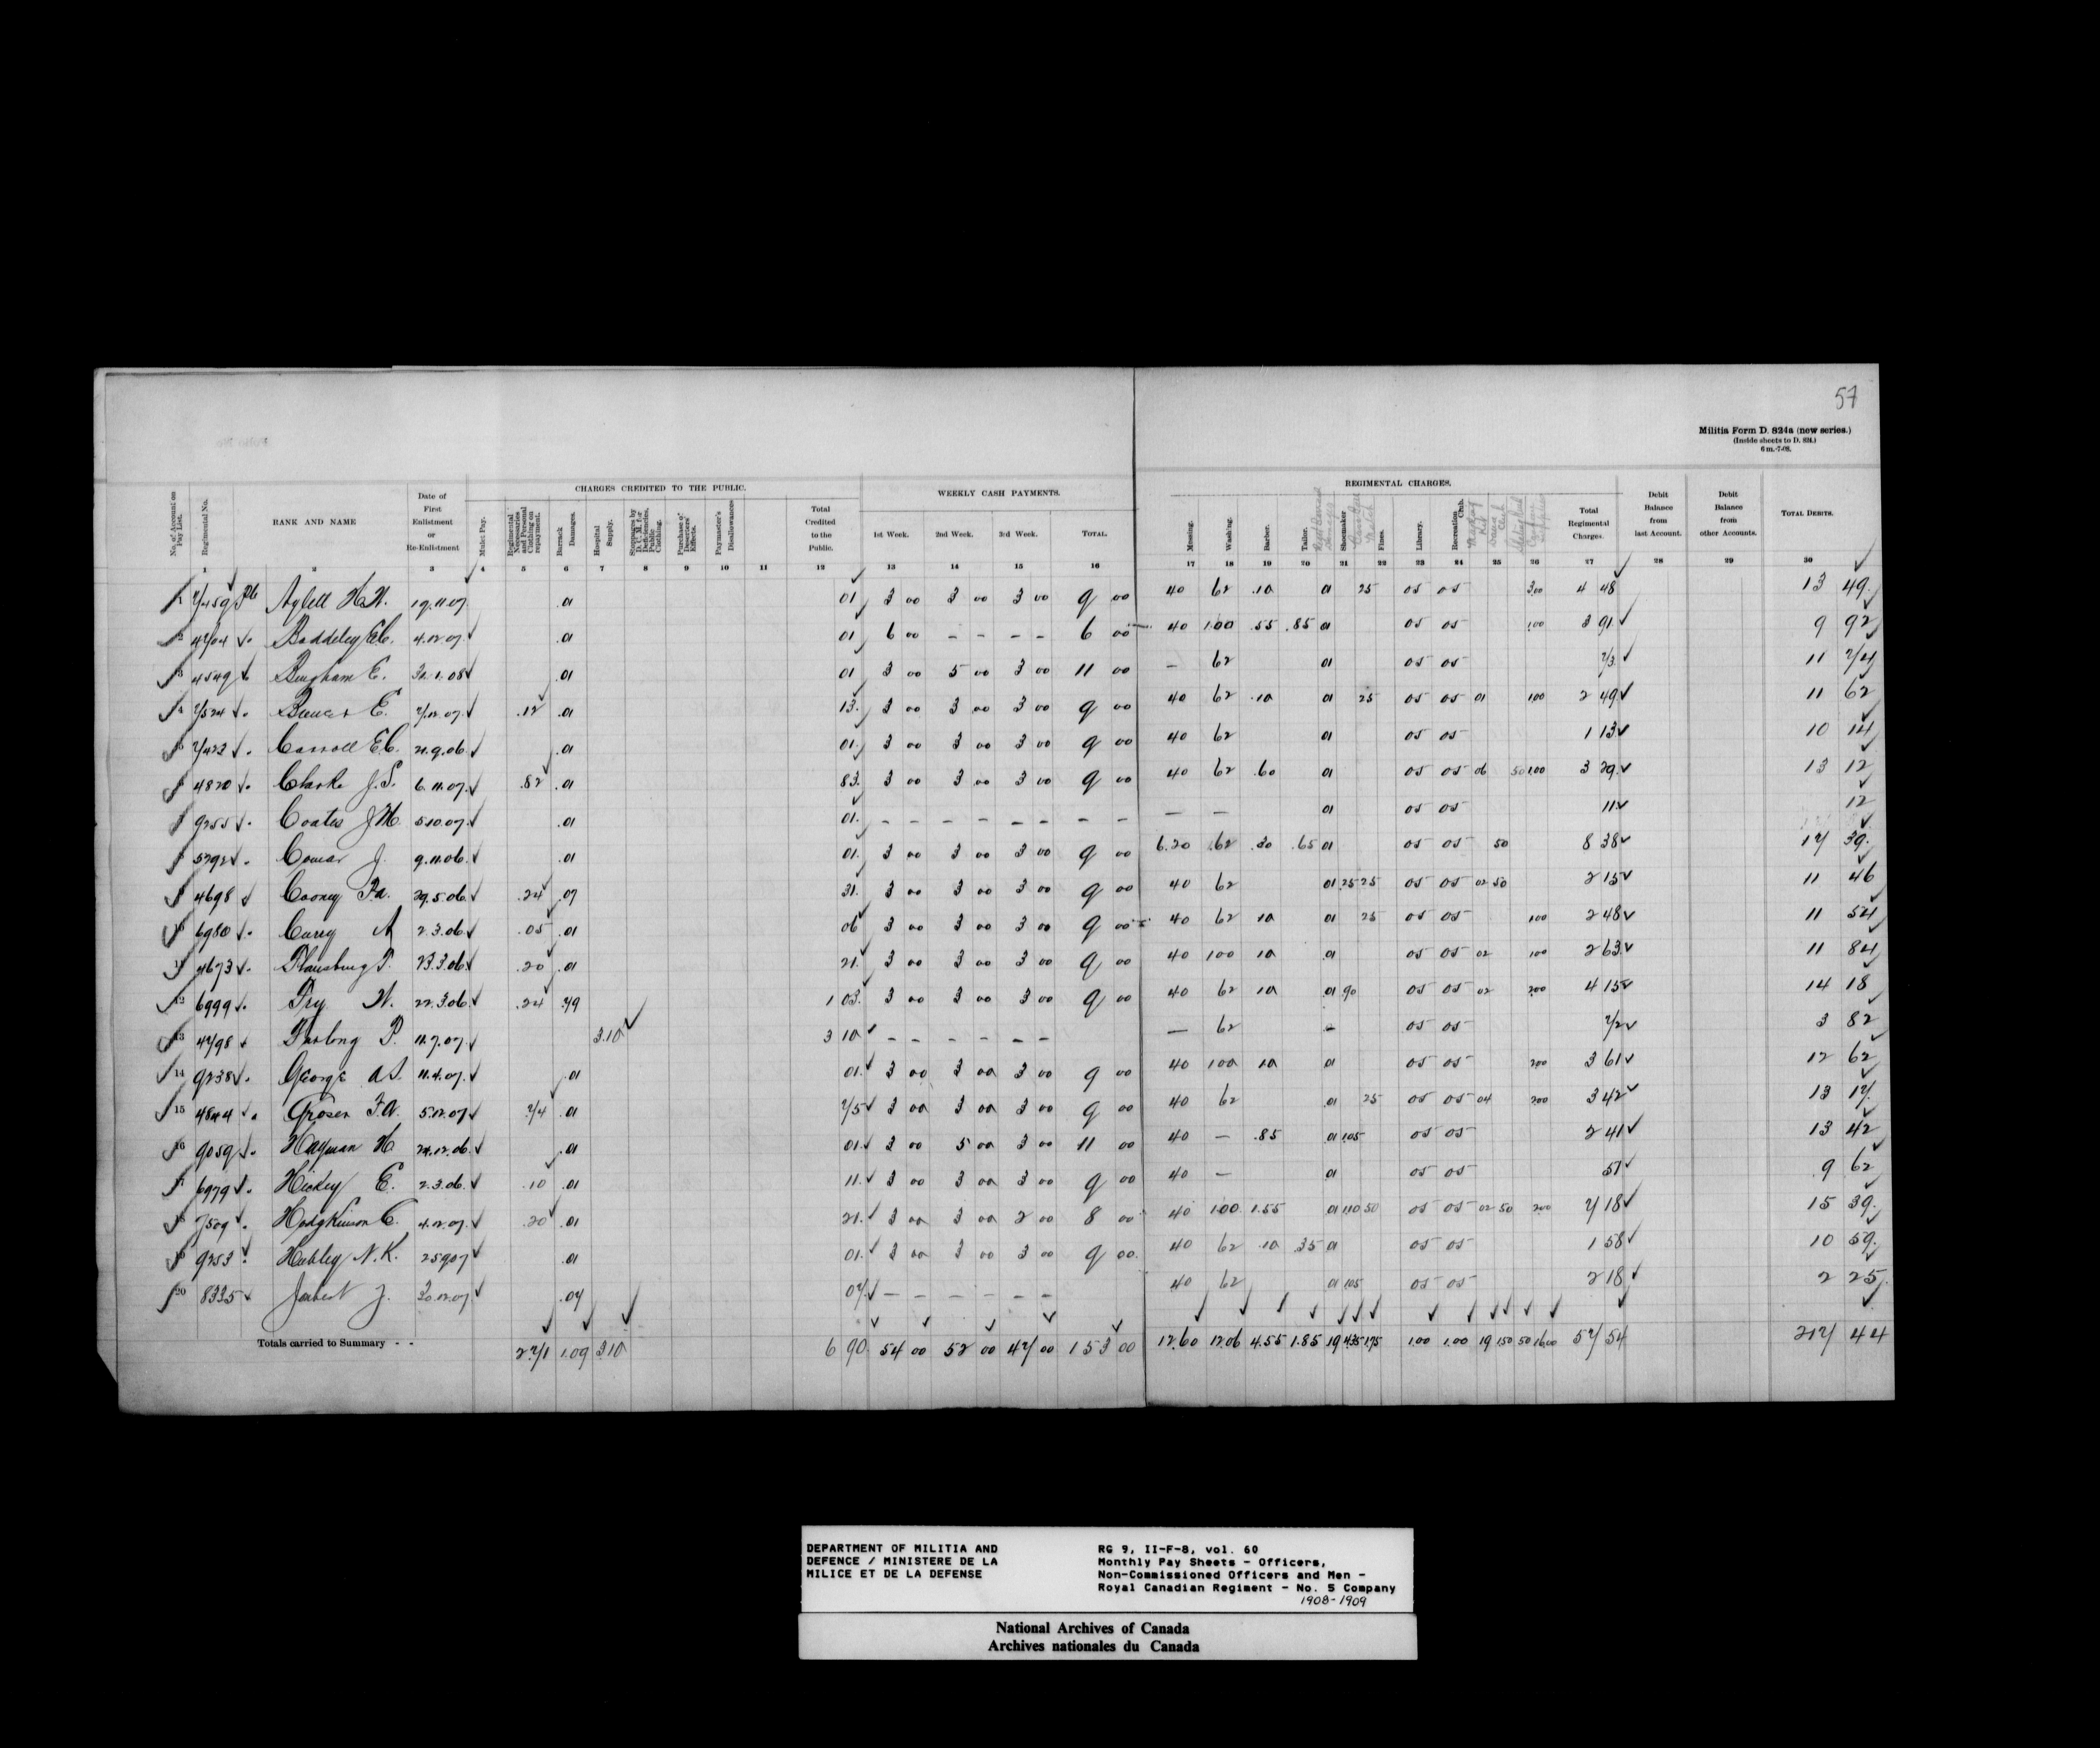 57
Militia Form D. 824a (new series.)
(Inside sheets to D. 824.)
6 m.-7-08.
CHARGES CREDITED TO THE PUBLIC. WEEKLY CASH PAYMENTS. REGIMENTAL CHARGES.
No. of Account on Pay List. Regimental No. RANK AND NAME Date of First Enlistment or Re-Enlistment Mulct Pay. Regimental Necessaries and Personal Clothing on repayment. Barrack Damages. Hospital Supply. Stoppages by D. C. M. for Deficiencies, Public Clothing. Purchase of Deserters' Effects. Paymaster's Disallowances Total Credited to the Public. 1st Week. 2nd Week. 3rd Week. TOTAL. Messing. Washing. Barber. Tailor. Shoemaker Fines. Library. Recreation Club. Total Regimental Charges. Debit Balance from last Account. Debit Balance from other Accounts. TOTAL DEBITS.
1 2 3 4 5 6 7 8 9 10 11 12 13 14 15 16 17 18 19 20 21 22 23 24 25 26 27 28 29 30
1 7459 Pte Aybell H.H. 19.11.07 .01 01 3 00 3 00 3 00 9 00 40 62 .10 01 25 05 05 3.00 4 48 13 49
2 4704 Baddeley E.C. 4.12.07 .01 01 6 00 – – – – 6 00 40 1.00 .55 .85 01 05 05 1.00 3 91 9 92
3 4549 Bingham E. 30.1.08 .01 01 3 00 5 00 3 00 11 00 – 62 01 05 05 73 11 74
4 7524 E. 7.12.07 .12 .01 13 3 00 3 00 3 00 9 00 40 62 .10 01 25 05 05 01 1.00 2 49 11 62
5 7423 Carroll E.C. 21.9.06 .01 01 3 00 3 00 3 00 9 00 40 62 01 05 05 1 13 10 14
6 4820 Clarke J.S. 6.11.07 .82 .01 83 3 00 3 00 3 00 9 00 40 62 .60 01 05 05 06 50 1.00 3 29 13 12
7 9255 Coates J.M. 5.10.07 .01 01 – – – – – – – – – – 01 05 05 11 12
8 5792 J. 9.11.06 .01 01 3 00 3 00 3 00 9 00 6.20 .62 .30 .65 01 05 05 50 8 38 17 39
9 4698 Cooney F.A. 29.5.06 .24 .07 31 3 00 3 00 3 00 9 00 40 62 01 25 25 05 05 02 50 2 15 11 46
10 6980 Curry A 2.3.06 .05 .01 06 3 00 3 00 3 00 9 00 40 62 10 01 25 05 05 1.00 2 48 11 54
11 4673 Flansburg P. 23.3.06 .20 .01 21 3 00 3 00 3 00 9 00 40 1.00 10 01 05 05 02 1.00 2 63 11 84
12 6999 Fry W. 22.3.06 .24 .79 1 03 3 00 3 00 3 00 9 00 40 62 10 01 90 05 05 02 2.00 4 15 14 18
13 4798 Furlong P. 11.7.07 3.10 3 10 – – – – – – – 62 – 05 05 72 3 82
14 9238 George A.S. 11.4.07 .01 01 3 00 3 00 3 00 9 00 40 1.00 10 01 05 05 2.00 3 61 12 62
15 4844 Groser F.A. 5.12.07 .74 .01 75 3 00 3 00 3 00 9 00 40 62 01 25 05 05 04 2.00 3 42 13 17
16 9059 Hayman H. 24.12.06 .01 01 3 00 5 00 3 00 11 00 40 – .85 01 1.05 05 05 2 41 13 42
17 6979 Hickey E. 2.3.06 .10 .01 11 3 00 3 00 3 00 9 00 40 – 01 05 05 51 9 62
18 7509 Hodgkinson C. 4.12.07 .20 .01 21 3 00 3 00 2 00 8 00 40 1.00 1.55 01 1.10 50 05 05 02 50 2.00 7 18 15 39
19 9253 Hubley N.K. 25.9.07 .01 01 3 00 3 00 3 00 9 00 40 62 .10 .35 01 05 05 1 58 10 59
20 8335 J. 30.12.07 .07 07 – – – – – – 40 62 01 1.05 05 05 2 18 2 25
Totals carried to Summary - - 2 71 1.09 3.10 6 90 54 00 52 00 47 00 153 00 12.60 12.06 4.55 1.85 19 4.35 1.75 1.00 1.00 19 1.50 50 16.00 57 54 217 44
DEPARTMENT OF MILITIA AND
DEFENCE / MINISTERE DE LA
MILICE ET DE LA DEFENSE
RG 9, II-F-8, vol. 60
Monthly Pay Sheets - Officers,
Non-Commissioned Officers and Men -
Royal Canadian Regiment - No. 5 Company
1908-1909
National Archives of Canada
Archives nationales du Canada